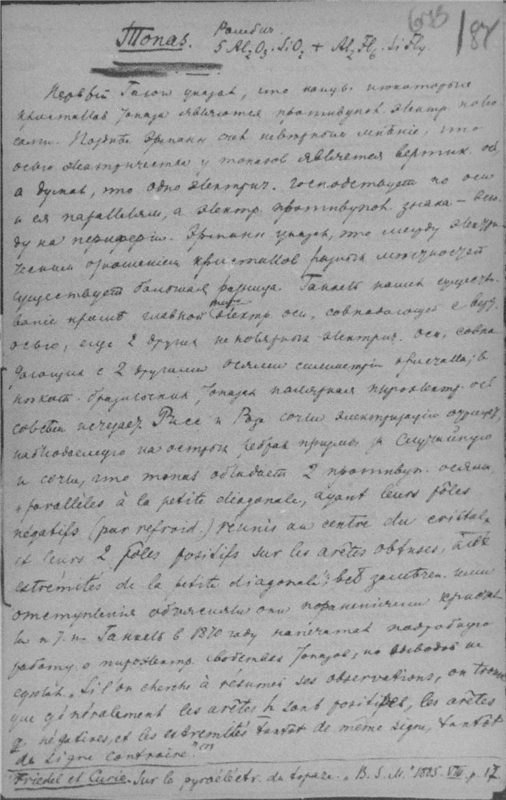 633
87
Топаз. Ромбич.
5 Al₂O₃.SiO₂ + Al₂Fl₆.SiFl₄
Первый указал, что концы некоторых
кристаллов топаза являются противупол. электр. полюсами.
Позднѣе Эрманн мнѣніе, что
осью электричества у топазов является вертик. ось,
а думал, что одно электрич. господствует по оси
и ея параллели, а электр. противупол. знака —
ду на периферіи. Эрманн указал, что между электри-
ческими отношеніями кристаллов разных мѣстностей
существует большая разница. Ганкель нашел существо-
ваніе кромѣ главной электр. оси, совпадающей с верт.
осью, еще 2 других электрич. оси, совпа-
дающих с 2 другими осями симметріи кристалла; в
топазах полярная пироэлектр. ось
совсѣм исчезает. Рисс и Розе сочли электризацію
наблюдаемую на острых ребрах призмы за случайную
и сочли, что топаз обладает 2 противуп. осями,
"parallèles à la petite diagonale, ayant leurs pôles
négatifs (par refroid.) réunis au centre du cristal,
et leurs 2 pôles positifs sur les arêtes obtuses, aux
extrémités de la petite diagonale"; всѣ замѣчен. ими
отступленія объясняли они кристал-
ла и т. п. Ганкель в 1870 году напечатал подробную
работу о пироэлектр. свойствах топазов, но выводов не
сдѣлал. Si l'on cherche à résumer ses observations, on trouve
que généralement les arêtes h sont positives, les arêtes
g négatives, et les extrémités tantôt de même signe, tantôt
de signe contraire."
Friedel et Curie. Sur la pyroélectr. de topaze. "B. S. M." 1885. VIII. p. 17